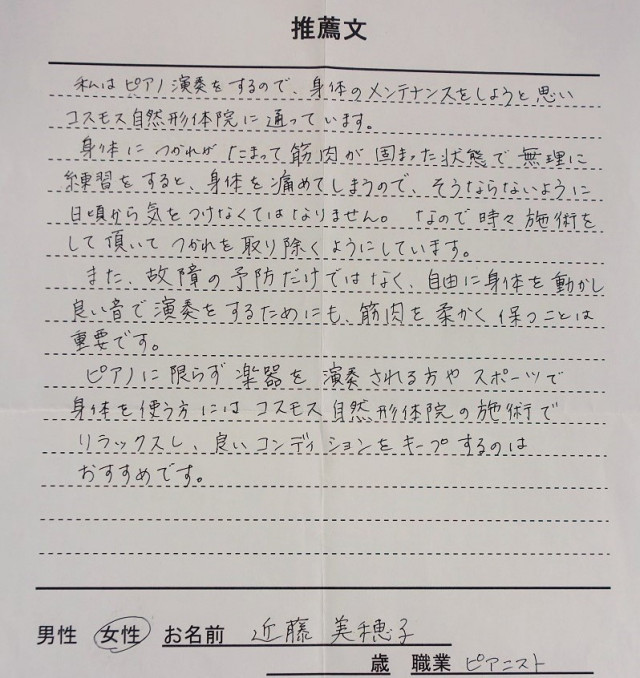 推薦文
私はピアノ演奏をするので、身体のメンテナンスをしようと思い
コスモス自然形体院に通っています。
身体につかれがたまって筋肉が固まった状態で無理に
練習をすると、身体を痛めてしまうので、そうならないように
日頃から気をつけなくてはなりません。なので時々施術を
して頂いてつかれを取り除くようにしています。
また、故障の予防だけではなく、自由に身体を動かし
良い音で演奏をするためにも、筋肉を柔かく保つことは
重要です。
ピアノに限らず楽器を演奏される方やスポーツで
身体を使う方にはコスモス自然形体院の施術で
リラックスし、良いコンディションをキープするのは
おすすめです。
男性 女性 お名前 近藤美穂子
歳 職業 ピアニスト